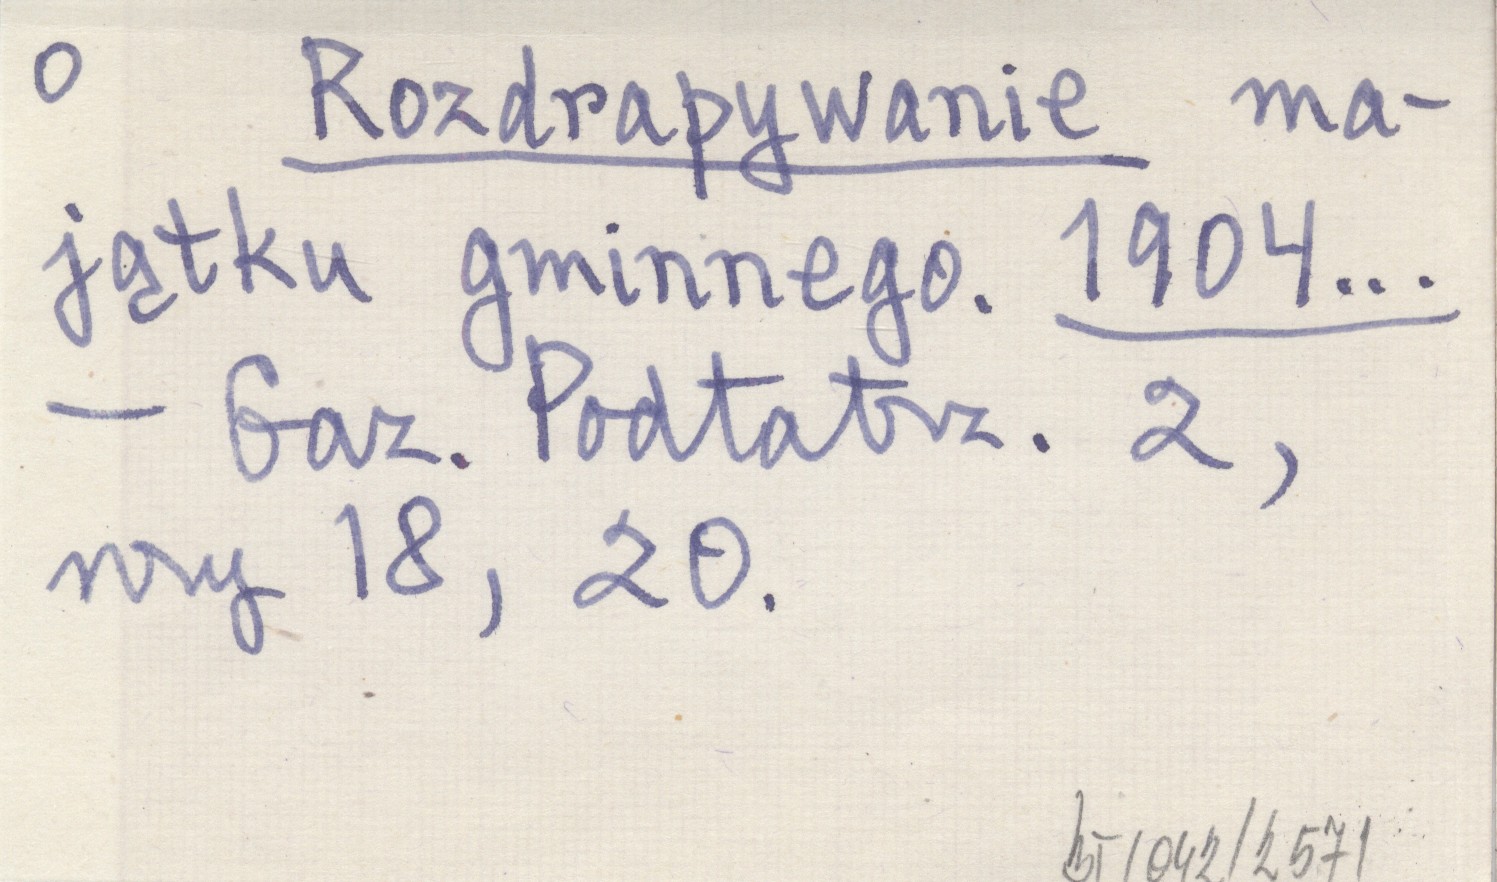 o Rozdrapywanie ma-
jątku gminnego. 1904...
— Gaz. Podtatrz. 2,
nry 18, 20.
1042/2571